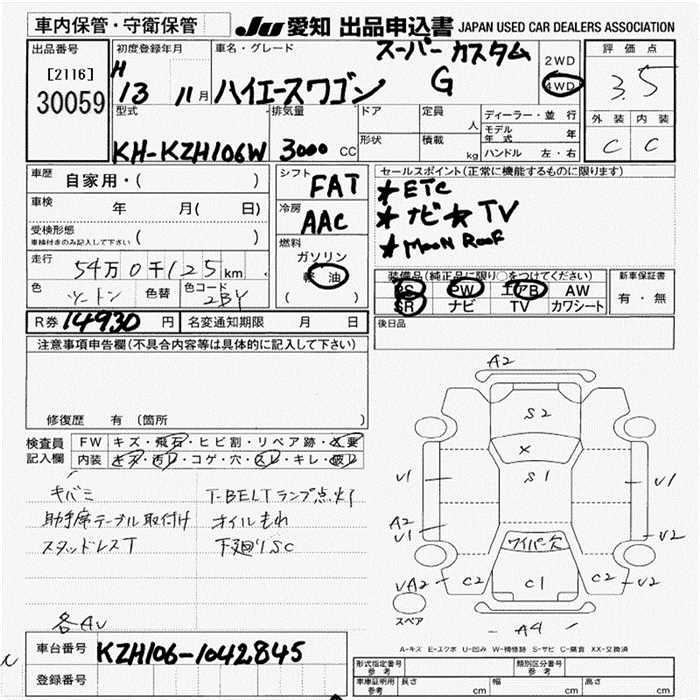 車内保管・守衛保管
JU 愛知 出品申込書 JAPAN USED CAR DEALERS ASSOCIATION
出品番号
[2116]
30059
初度登録年月
H 13 11月
車名・グレード
スーパーカスタム
ハイエースワゴン G
2WD
4WD
評価点
3.5
外装 内装
C C
型式
KH-KZH106W
排気量
3000 CC
ドア
形状
定員
人
積載
kg
ディーラー・並行
モデル年式 年
ハンドル 左・右
車歴 自家用・( )
車検 年 月( 日)
受検形態
車検付きのみ記入して下さい ( )
走行 54万0千125km
色 ツートン 色替 色コード 2BY
シフト FAT
冷房 AAC
燃料
ガソリン
軽油
( )
セールスポイント(正常に機能するものに限ります)
★ETC
★ナビ★TV
★MOON ROOF
装備品(純正品に限り○をつけてください)
PS PW エアB AW
SR ナビ TV カワシート
新車保証書
有・無
R券 14930 円 名変通知期限 月 日
後日品
注意事項申告欄(不具合内容等は具体的に記入して下さい)
修復歴 有 (箇所 )
検査員記入欄
FW キズ・飛石・ヒビ割・リペア跡・X要
内装 キズ・汚レ・コゲ・穴・スレ・キレ・破レ
キバミ T-BELTランプ点灯
助手席テーブル取付け オイルもれ
スタッドレスT 下廻りSC
各AU
A2
S2
X
U1 S1 U1
A2
U1
ワイパー欠
UA2 C2 C1 C2 U2
U2
スペア
A4
A-キズ E-エクボ U-凹み W-補修跡 S-サビ C-腐食 XX-交換済
車台番号 KZH106-1042845
登録番号
形式指定番号
参考
類別区分番号
参考
車庫証明用
参考
長さ cm 幅 cm 高さ cm